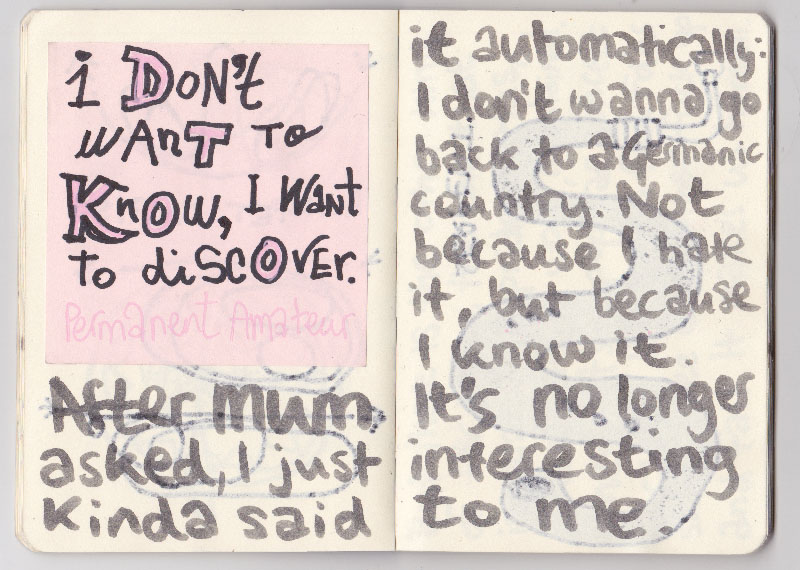 i DON't
wAnT To
KnOw, I WANt
To diSCOVEr.
Permanent Amateur
After mum
asked, I just
kinda said
it automatically:
I don't wanna go
back to a Germanic
country. Not
because I hate
it, but because
I know it.
It's no longer
interesting
to me.